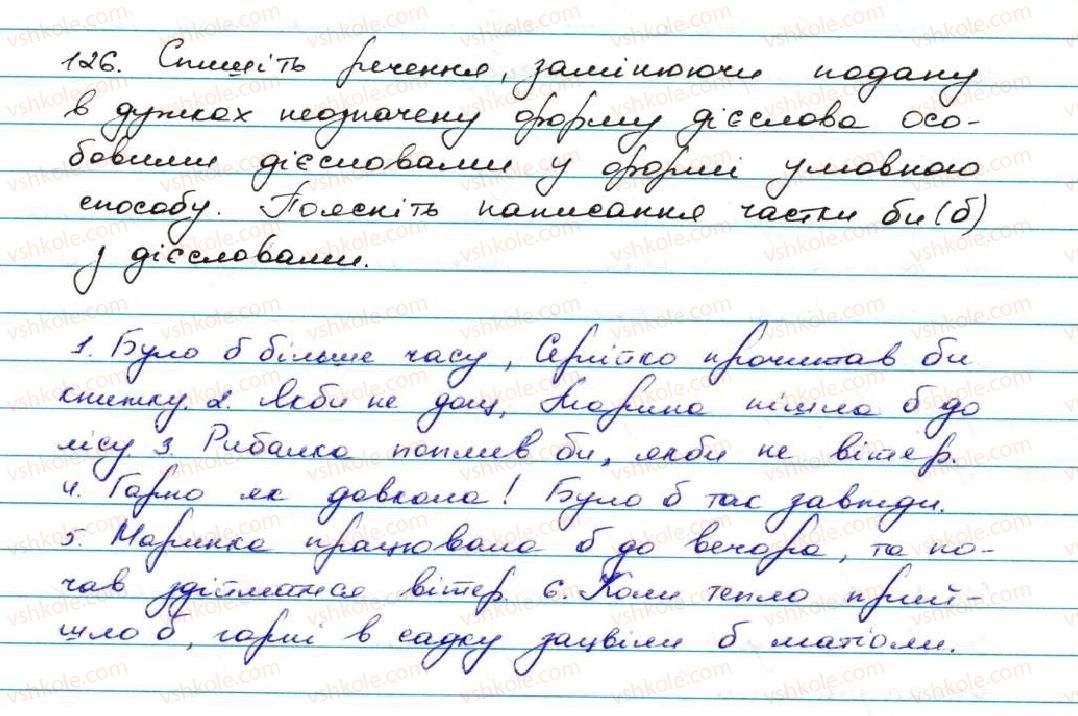 126. Спишіть речення, замінюючи подану
в дужках неозначену форму дієслова осо-
бовими дієсловами у формі умовного
способу. Поясніть написання частки би (б)
з дієсловами.
1. Було б більше часу, Сергійко прочитав би
книжку. 2. Якби не дощ, Марина пішла б до
лісу 3. Рибалка поплив би, якби не вітер.
4. Гарно як довкола! Було б так завжди.
5. Маринка працювала б до вечора, та по-
чав здійматися вітер. 6. Коли тепло прий-
шло б, гарні в садку зацвіли б матіоли.